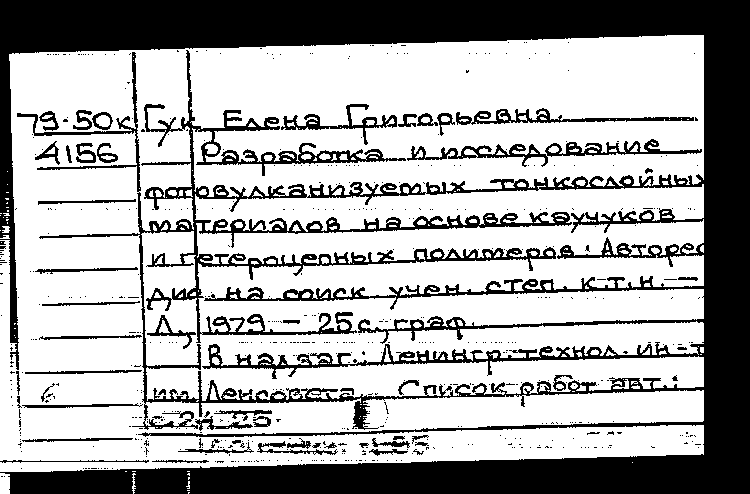 79-50к Гук, Елена Григорьевна.
4156 Разработка и исследование
фотовулканизуемых тонкослойных
материалов на основе каучуков
и гетероцепных полимеров: Авторе
дис. на соиск. учен. степ. к.т.н. —
Л., 1979. — 25 с., граф.
В надзаг.: Ленингр. технол. ин-т
6 им. Ленсовета. Список работ авт.:
с. 24-25.